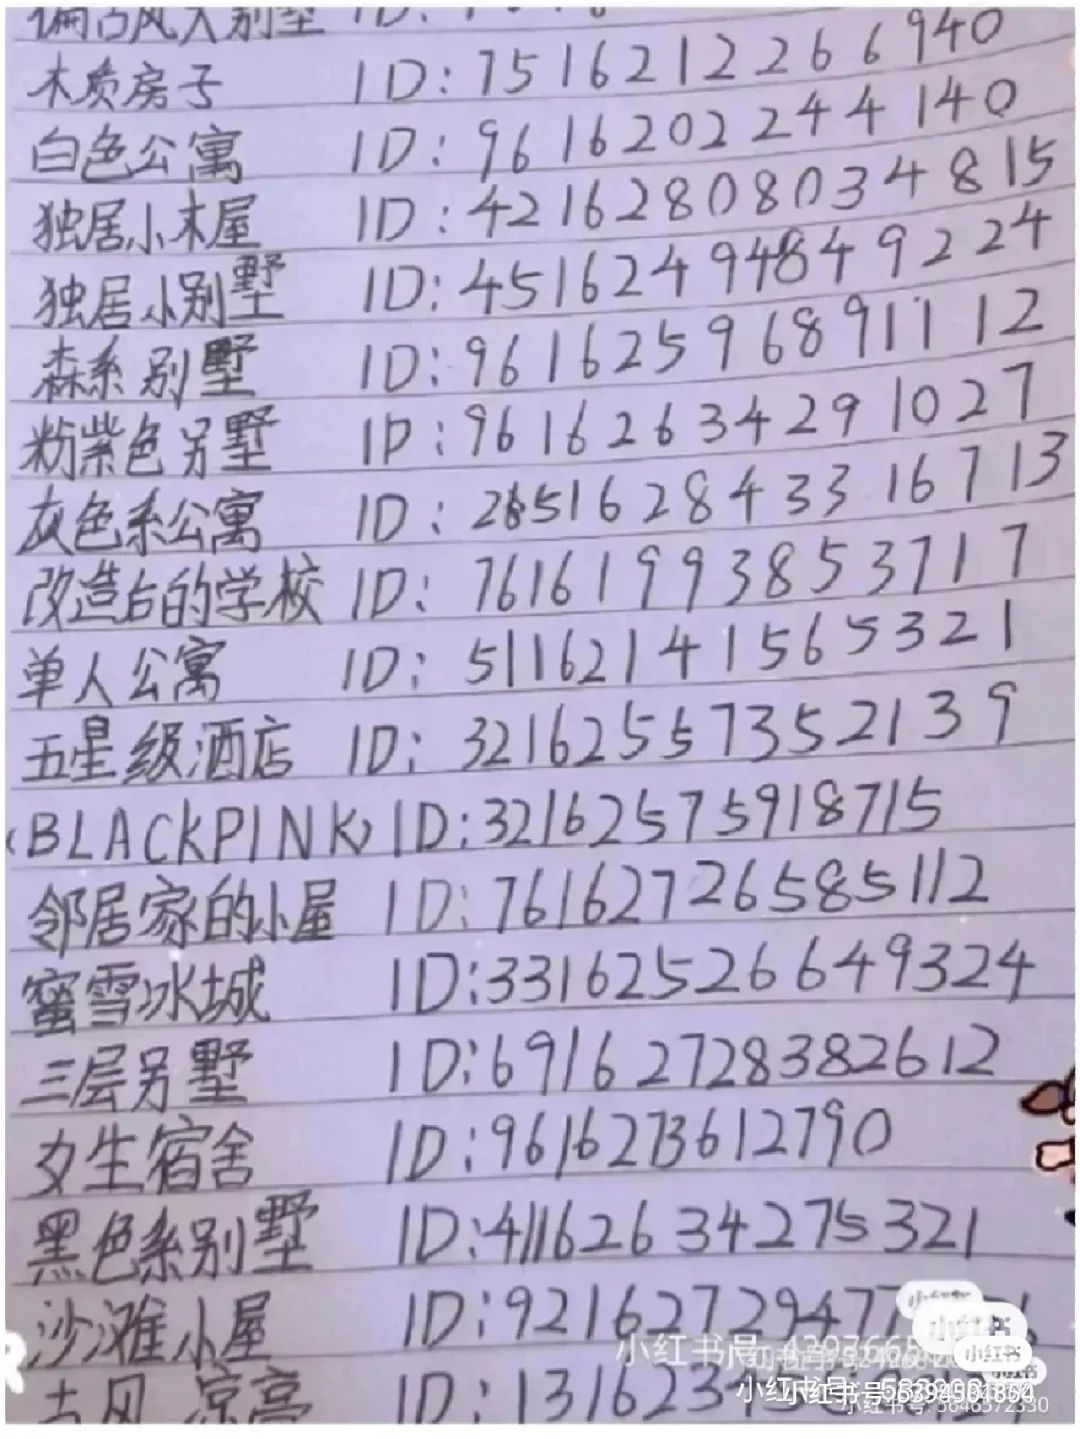 偏古风大别墅 ID:
木质房子 ID:7516212266940
白色公寓 ID:9616202244140
独居小木屋 ID:42162808034815
独居小别墅 ID:45162494849224
森系别墅 ID:96162596891112
粉紫色另墅 ID:96162634291027
灰色系公寓 ID:265162843316713
改造后的学校 ID:76161993853717
单人公寓 ID:51162141565321
五星级酒店 ID:32162557352139
《BLACKPINK》ID:32162575918715
邻居家的小屋 ID:76162726585112
蜜雪冰城 ID:33162526649324
三层另墅 ID:69162728382612
女生宿舍 ID:9616273612790
黑色系别墅 ID:41162634275321
沙滩小屋 ID:92162729477
古风凉亭 ID:1316239
小红书
小红书
小红书
小红书号
小红书号:6394501854
小红书号:3646572330